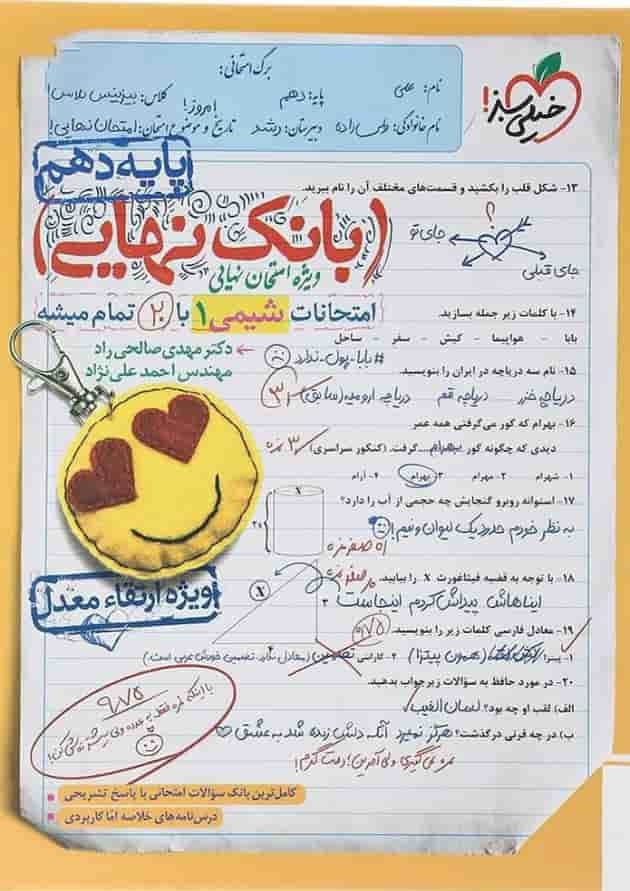 خیلی سبز!
برگ امتحانی:
نام: علی
پایه: دهم
کلاس: بیزینس پلاس
امروز!
نام خانوادگی: دبیرستان: رشد
تاریخ و موضوع امتحان: امتحان نهایی!
پایه دهم
۱۳- شکل قلب را بکشید و قسمت‌های مختلف آن را نام ببرید.
؟
جای تو
جای قبلی
(بانک نهایی)
ویژه امتحان نهایی
امتحانات شیمی ۱ با ۲۰ تمام میشه
دکتر مهدی صالحی راد
مهندس احمد علی‌نژاد
۱۴- با کلمات زیر جمله بسازید.
بابا - هواپیما - کیش - سفر - ساحل
#بابا_پول_ندارد
۱۵- نام سه دریاچه در ایران را بنویسید.
دریاچه خزر دریاچه قم دریاچه ارومیه (سابق)
۱۶- بهرام که گور می‌گرفتی همه عمر
دیدی که چگونه گور بهرام گرفت. (کنکور سراسری)
۱- شهرام ۲- مهرام ۳- بهرام ۴- آرام
۱۷- استوانه روبرو گنجایش چه حجمی از آب را دارد؟
x
به نظر خودم حدود یک لیوان و نیم!
۱۸- با توجه به قضیه فیثاغورث X را بیابید.
X
۳
ایناهاش پیداش کردم اینجاست
ویژه ارتقاء معدل
۱۹- معادل فارسی کلمات زیر را بنویسید.
۱- پیتزا (همون پیتزا) ۲- گارانتی تضمین (معادل نداره، تضمین خودش عربی است.)
۲۰- در مورد حافظ به سؤالات زیر جواب بدهید.
الف) لقب او چه بود؟ لسان الغیب
ب) در چه قرنی درگذشت؟ هرگز نمیرد آنکه دلش زنده شد به عشق
نمره نمی‌گیری ولی آفرین! دمت گرم!
۹٫۷۵
کامل‌ترین بانک سؤالات امتحانی با پاسخ تشریحی
درس‌نامه‌های خلاصه امّا کاربردی